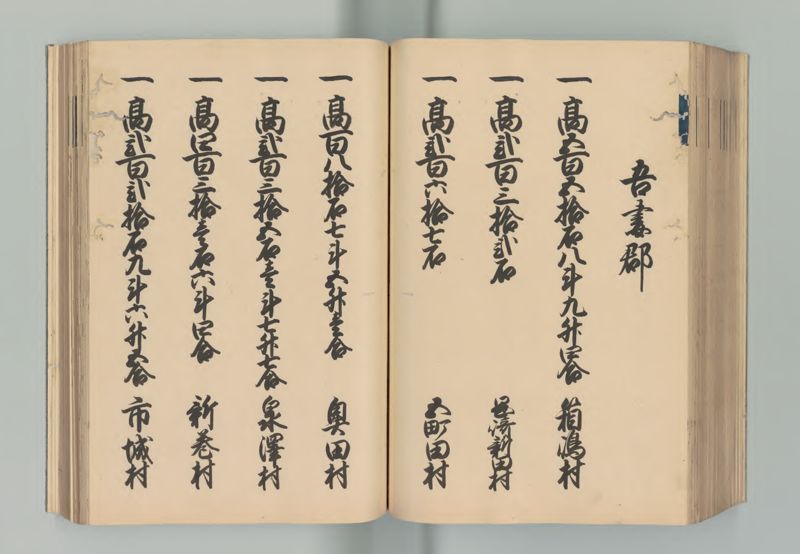 吾妻郡
一 高五百五拾石八斗九升四合 箱嶋村
一 高弐百三拾弐石 岡崎新田村
一 高弐百六拾七石 五町田村
一 高百八拾石七斗五升壱合 奥田村
一 高弐百三拾五石壱斗七升七合 泉澤村
一 高四百三拾壱石六斗四合 新巻村
一 高弐百弐拾石九斗六升五合 市城村